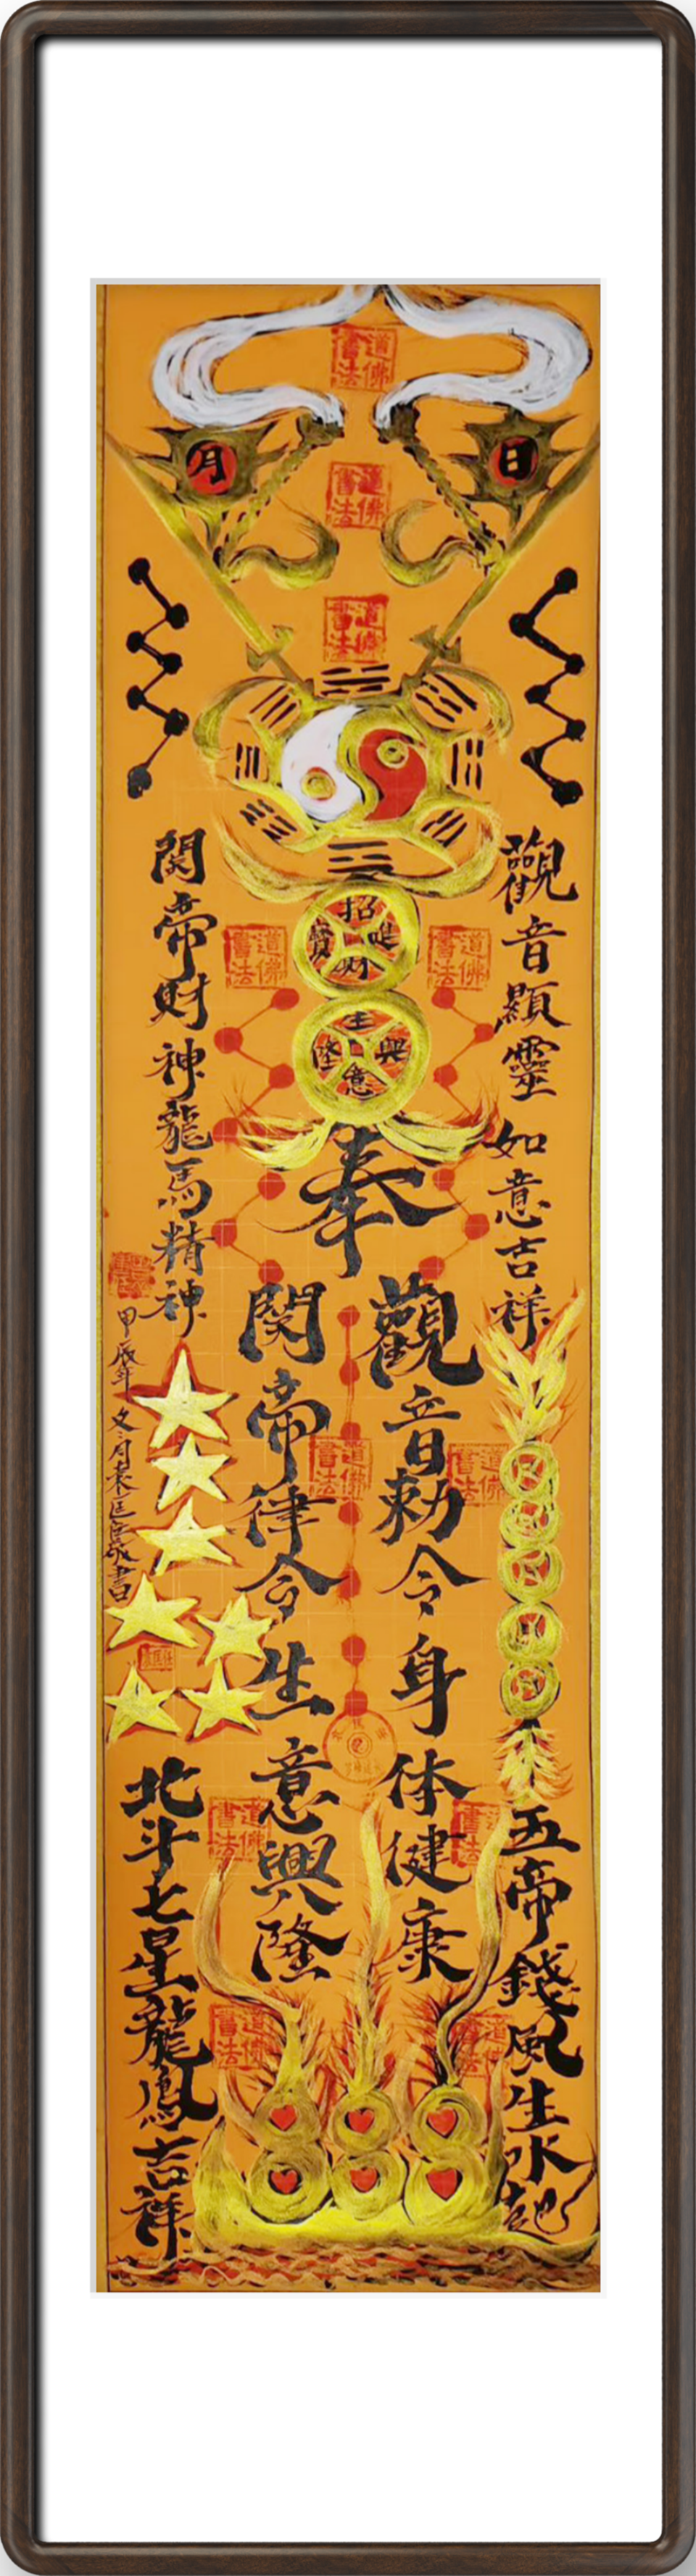 日
月
招財進寶
生意興隆
奉
觀音顯靈如意吉祥
五帝錢風生水起
觀音勅令身体健康
関帝律令生意興隆
関帝財神龍馬精神
北斗七星龍鳳吉祥
甲辰年冬月袁
書
道佛書法
道佛書法
道佛書法
道佛書法
道佛書法
道佛書法
道佛書法
道佛書法
道佛書法
道佛書法
道佛書法